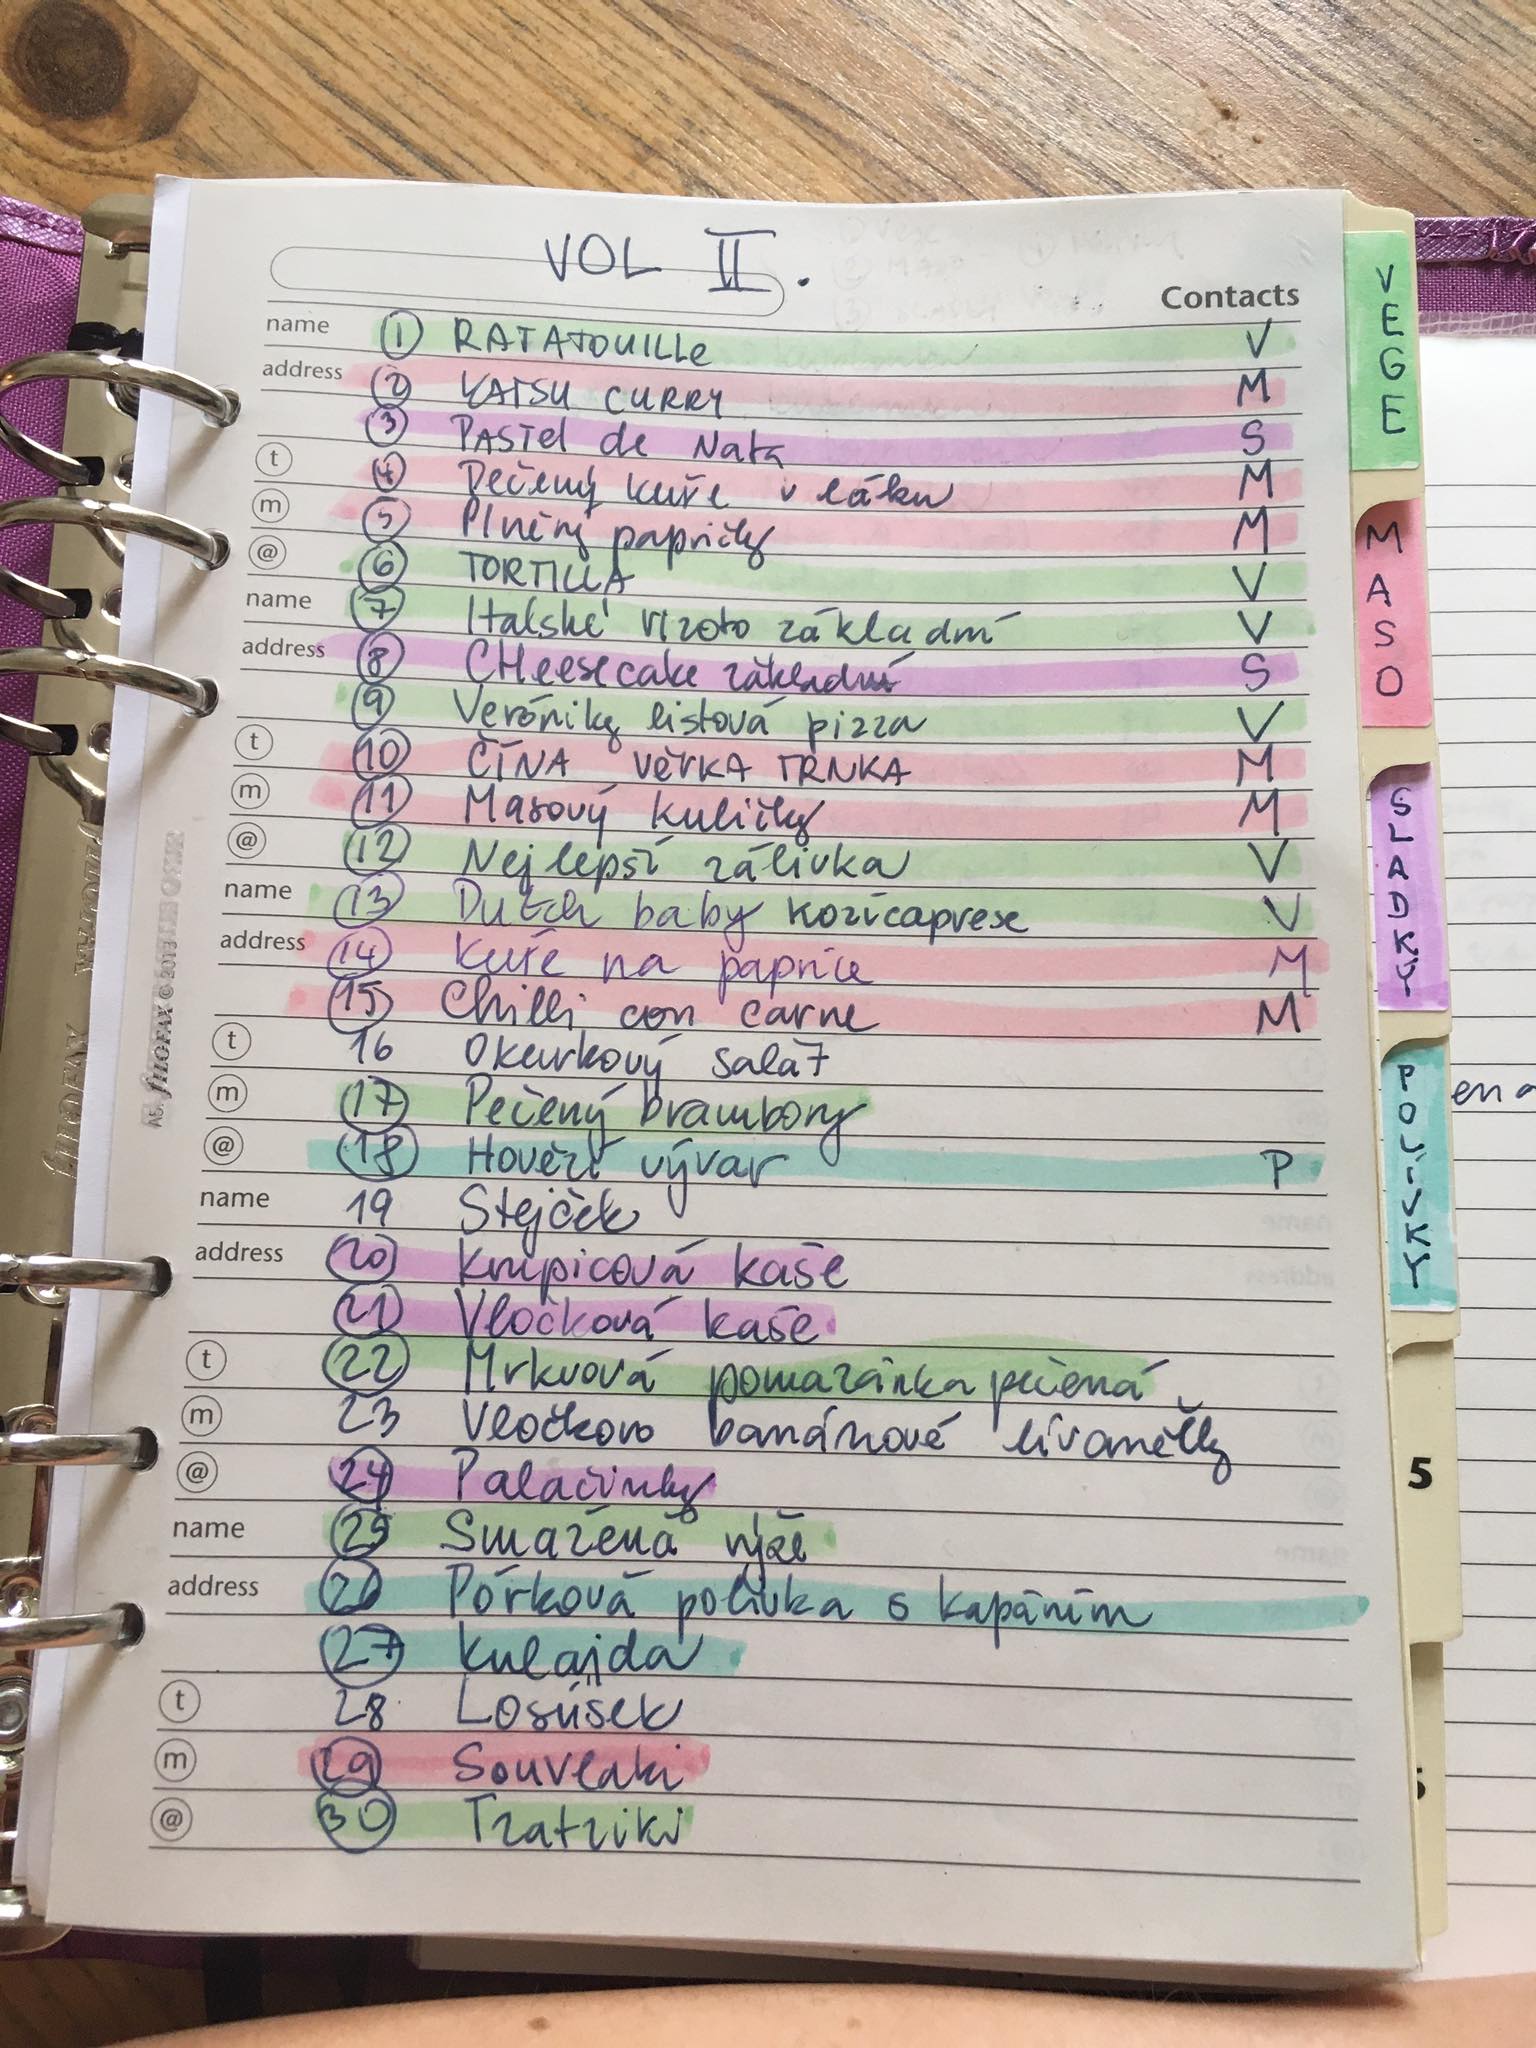 VOL II.
Contacts
name ① RATATOUILLe V
address ② KATSU CURRY M
③ PASTel de Nata S
t ④ Pečený kuře v láku M
m ⑤ Plněný papričky M
@ ⑥ TORTILLA V
name ⑦ Italské rizoto základní V
address ⑧ CHeesecake základní S
⑨ Veróniky listová pizza V
t ⑩ ČÍNA VĚRKA TRNKA M
m ⑪ Masový kuličky M
@ ⑫ Nejlepší zálivka V
name ⑬ Dutch baby kozícaprese V
address ⑭ kuře na paprice M
⑮ Chilli con carne M
t 16 Okurkový salát
m ⑰ Pečený brambory
@ ⑱ Hovězí vývar P
name 19 Stejček
address ⑳ krupicová kaše
㉑ Vločková kaše
t ㉒ Mrkvová pomazánka pečená
m 23 Vločkovo banánové lívanečky
@ ㉔ Palačinky
name ㉕ Smažená rýže
address ㉖ Pórková polívka s kapáním
㉗ kulajda
t 28 Losúsek
m ㉙ Souvlaki
@ ㉚ Tzatziki
VEGE
MASO
SLADKÝ
POLÍVKY
5
A5. fILOFAX © 2013
fILOFAX